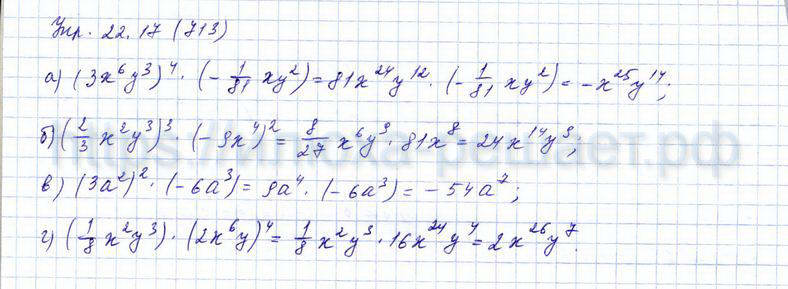 Упр. 22.17 (713)
а) (3x⁶y³)⁴ · (-1/81 xy²) = 81x²⁴y¹² · (-1/81 xy²) = -x²⁵y¹⁴;
б) (2/3 x²y³)³ · (-9x⁴)² = 8/27 x⁶y⁹ · 81x⁸ = 24x¹⁴y⁹;
в) (3a²)² · (-6a³) = 9a⁴ · (-6a³) = -54a⁷;
г) (1/8 x²y³) · (2x⁶y)⁴ = 1/8 x²y³ · 16x²⁴y⁴ = 2x²⁶y⁷.